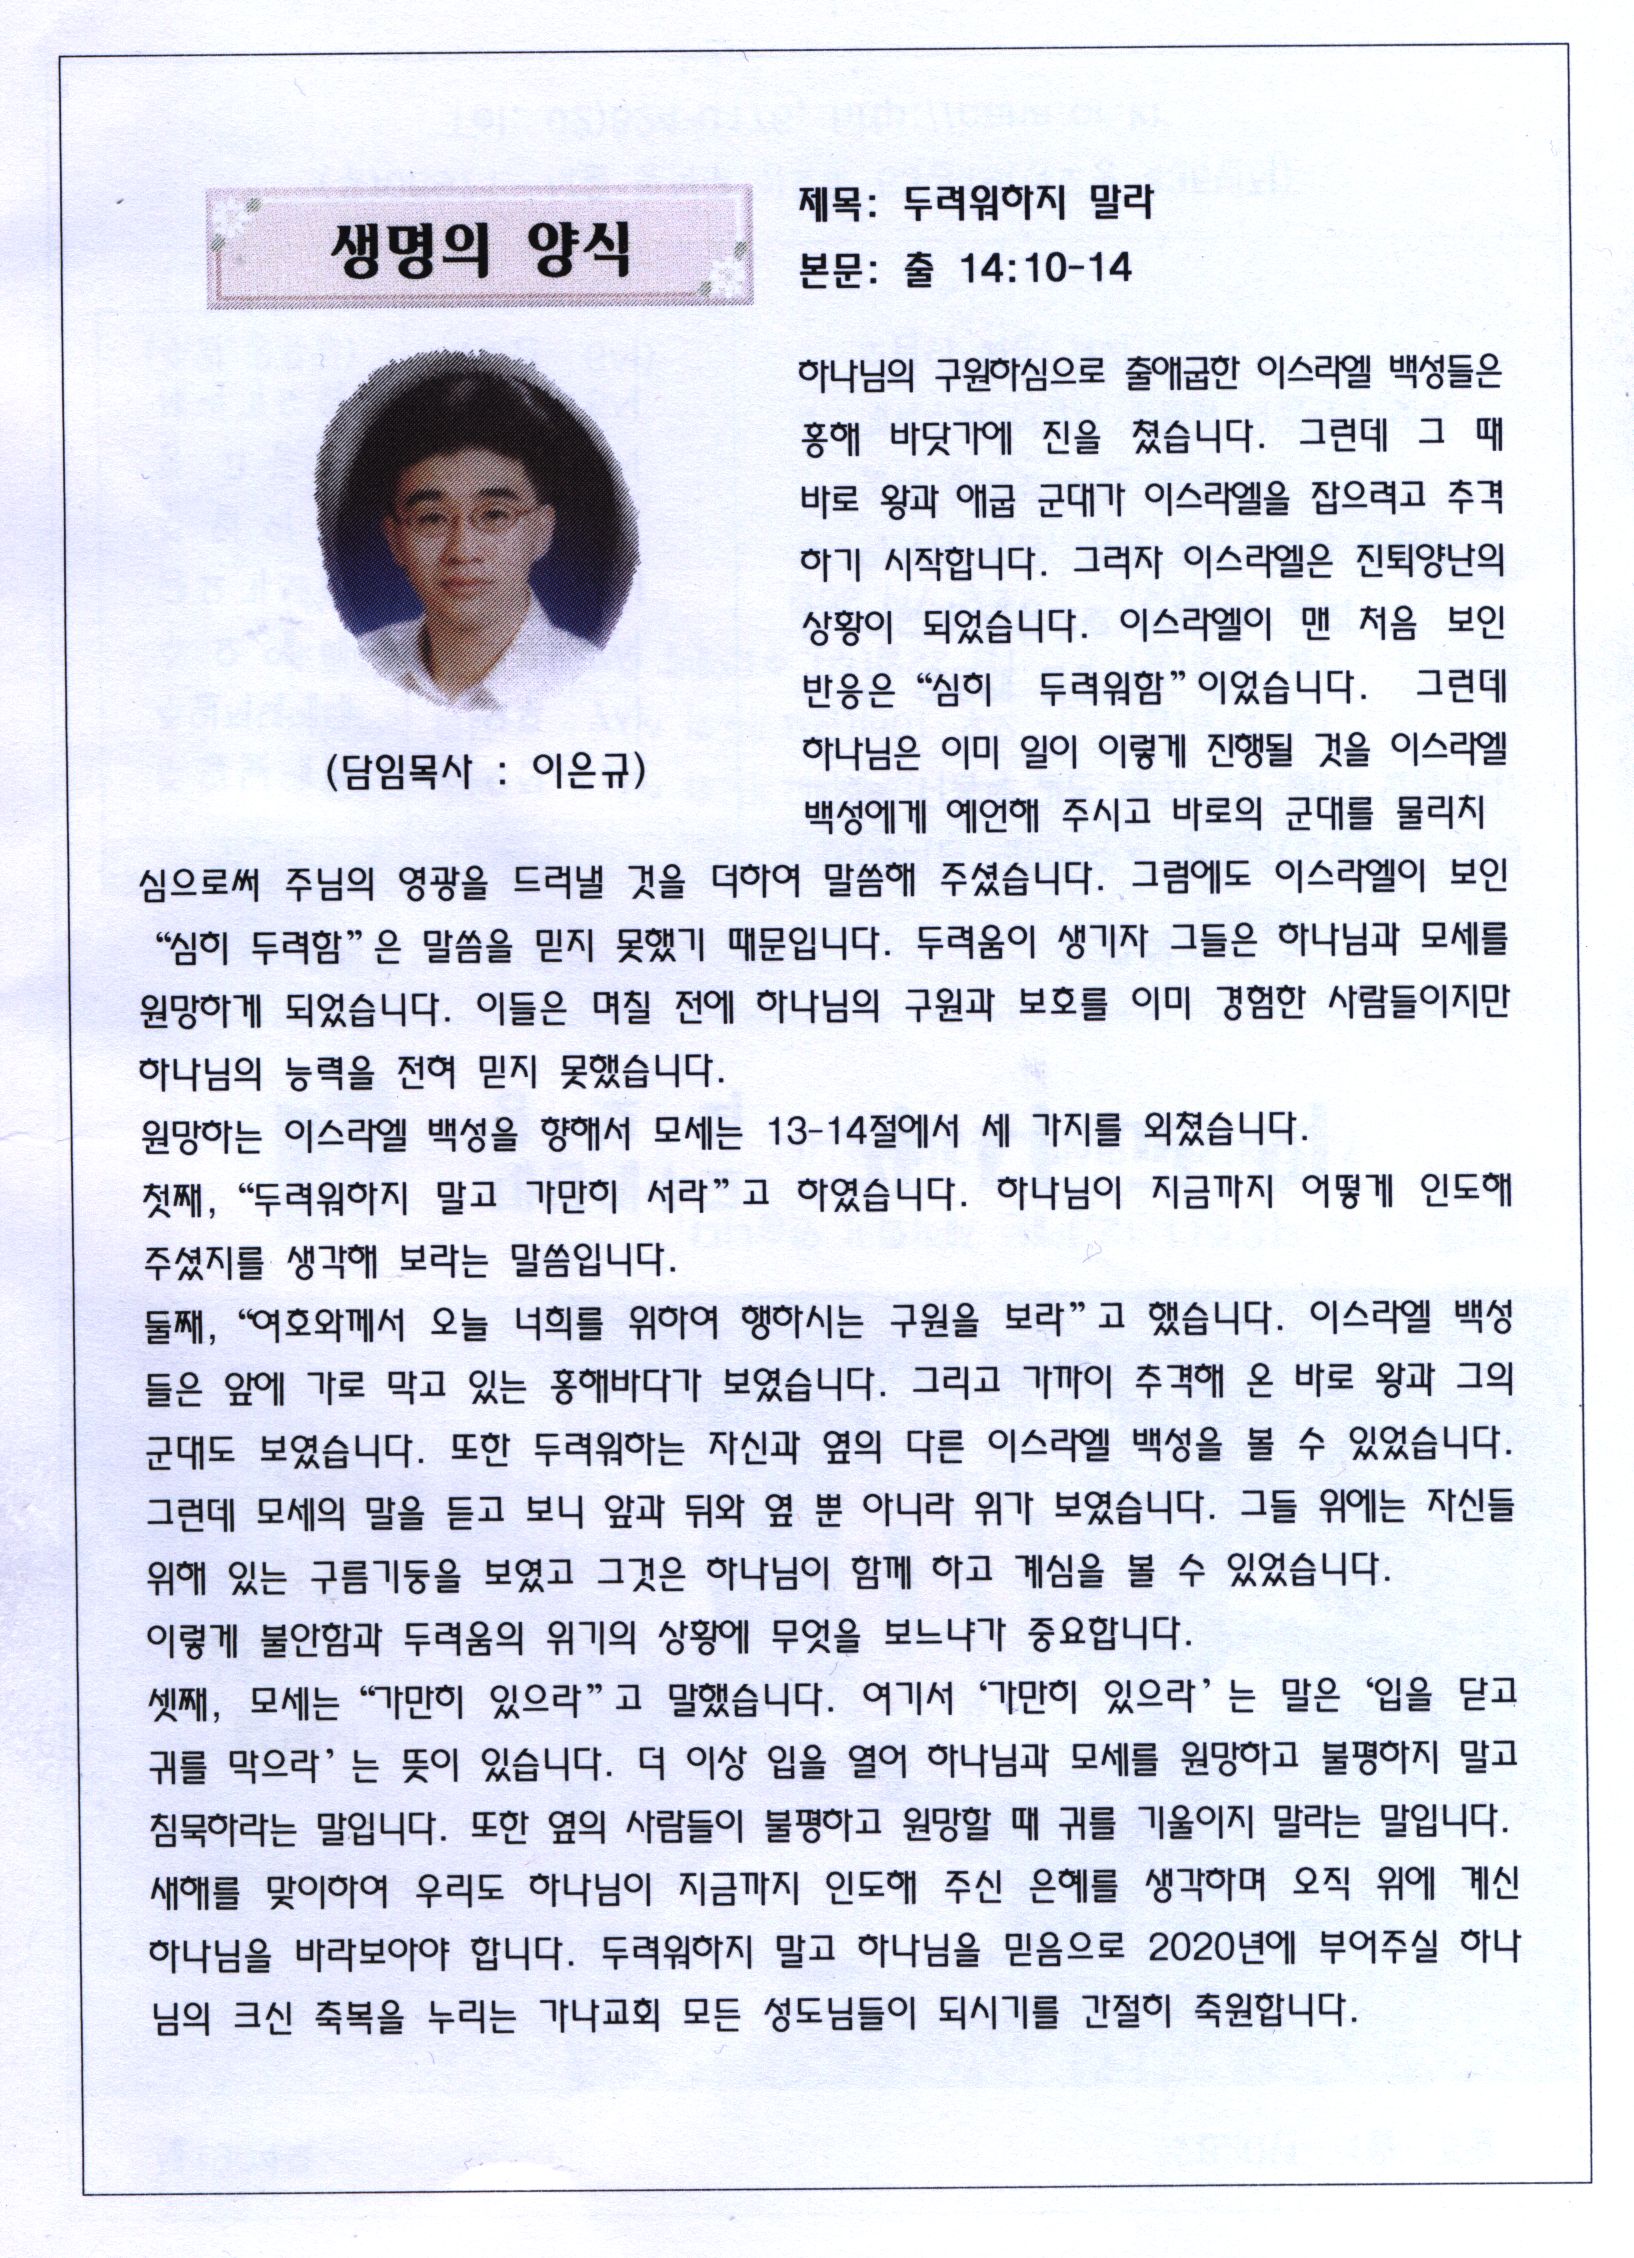 생명의 양식
제목: 두려워하지 말라
본문: 출 14:10-14
(담임목사 : 이은규)
하나님의 구원하심으로 출애굽한 이스라엘 백성들은
홍해 바닷가에 진을 쳤습니다. 그런데 그 때
바로 왕과 애굽 군대가 이스라엘을 잡으려고 추격
하기 시작합니다. 그러자 이스라엘은 진퇴양난의
상황이 되었습니다. 이스라엘이 맨 처음 보인
반응은 “심히 두려워함”이었습니다. 그런데
하나님은 이미 일이 이렇게 진행될 것을 이스라엘
백성에게 예언해 주시고 바로의 군대를 물리치
심으로써 주님의 영광을 드러낼 것을 더하여 말씀해 주셨습니다. 그럼에도 이스라엘이 보인
“심히 두려함”은 말씀을 믿지 못했기 때문입니다. 두려움이 생기자 그들은 하나님과 모세를
원망하게 되었습니다. 이들은 며칠 전에 하나님의 구원과 보호를 이미 경험한 사람들이지만
하나님의 능력을 전혀 믿지 못했습니다.
원망하는 이스라엘 백성을 향해서 모세는 13-14절에서 세 가지를 외쳤습니다.
첫째, “두려워하지 말고 가만히 서라”고 하였습니다. 하나님이 지금까지 어떻게 인도해
주셨지를 생각해 보라는 말씀입니다.
둘째, “여호와께서 오늘 너희를 위하여 행하시는 구원을 보라”고 했습니다. 이스라엘 백성
들은 앞에 가로 막고 있는 홍해바다가 보였습니다. 그리고 가까이 추격해 온 바로 왕과 그의
군대도 보였습니다. 또한 두려워하는 자신과 옆의 다른 이스라엘 백성을 볼 수 있었습니다.
그런데 모세의 말을 듣고 보니 앞과 뒤와 옆 뿐 아니라 위가 보였습니다. 그들 위에는 자신들
위해 있는 구름기둥을 보였고 그것은 하나님이 함께 하고 계심을 볼 수 있었습니다.
이렇게 불안함과 두려움의 위기의 상황에 무엇을 보느냐가 중요합니다.
셋째, 모세는 “가만히 있으라”고 말했습니다. 여기서 ‘가만히 있으라’는 말은 ‘입을 닫고
귀를 막으라’는 뜻이 있습니다. 더 이상 입을 열어 하나님과 모세를 원망하고 불평하지 말고
침묵하라는 말입니다. 또한 옆의 사람들이 불평하고 원망할 때 귀를 기울이지 말라는 말입니다.
새해를 맞이하여 우리도 하나님이 지금까지 인도해 주신 은혜를 생각하며 오직 위에 계신
하나님을 바라보아야 합니다. 두려워하지 말고 하나님을 믿음으로 2020년에 부어주실 하나
님의 크신 축복을 누리는 가나교회 모든 성도님들이 되시기를 간절히 축원합니다.